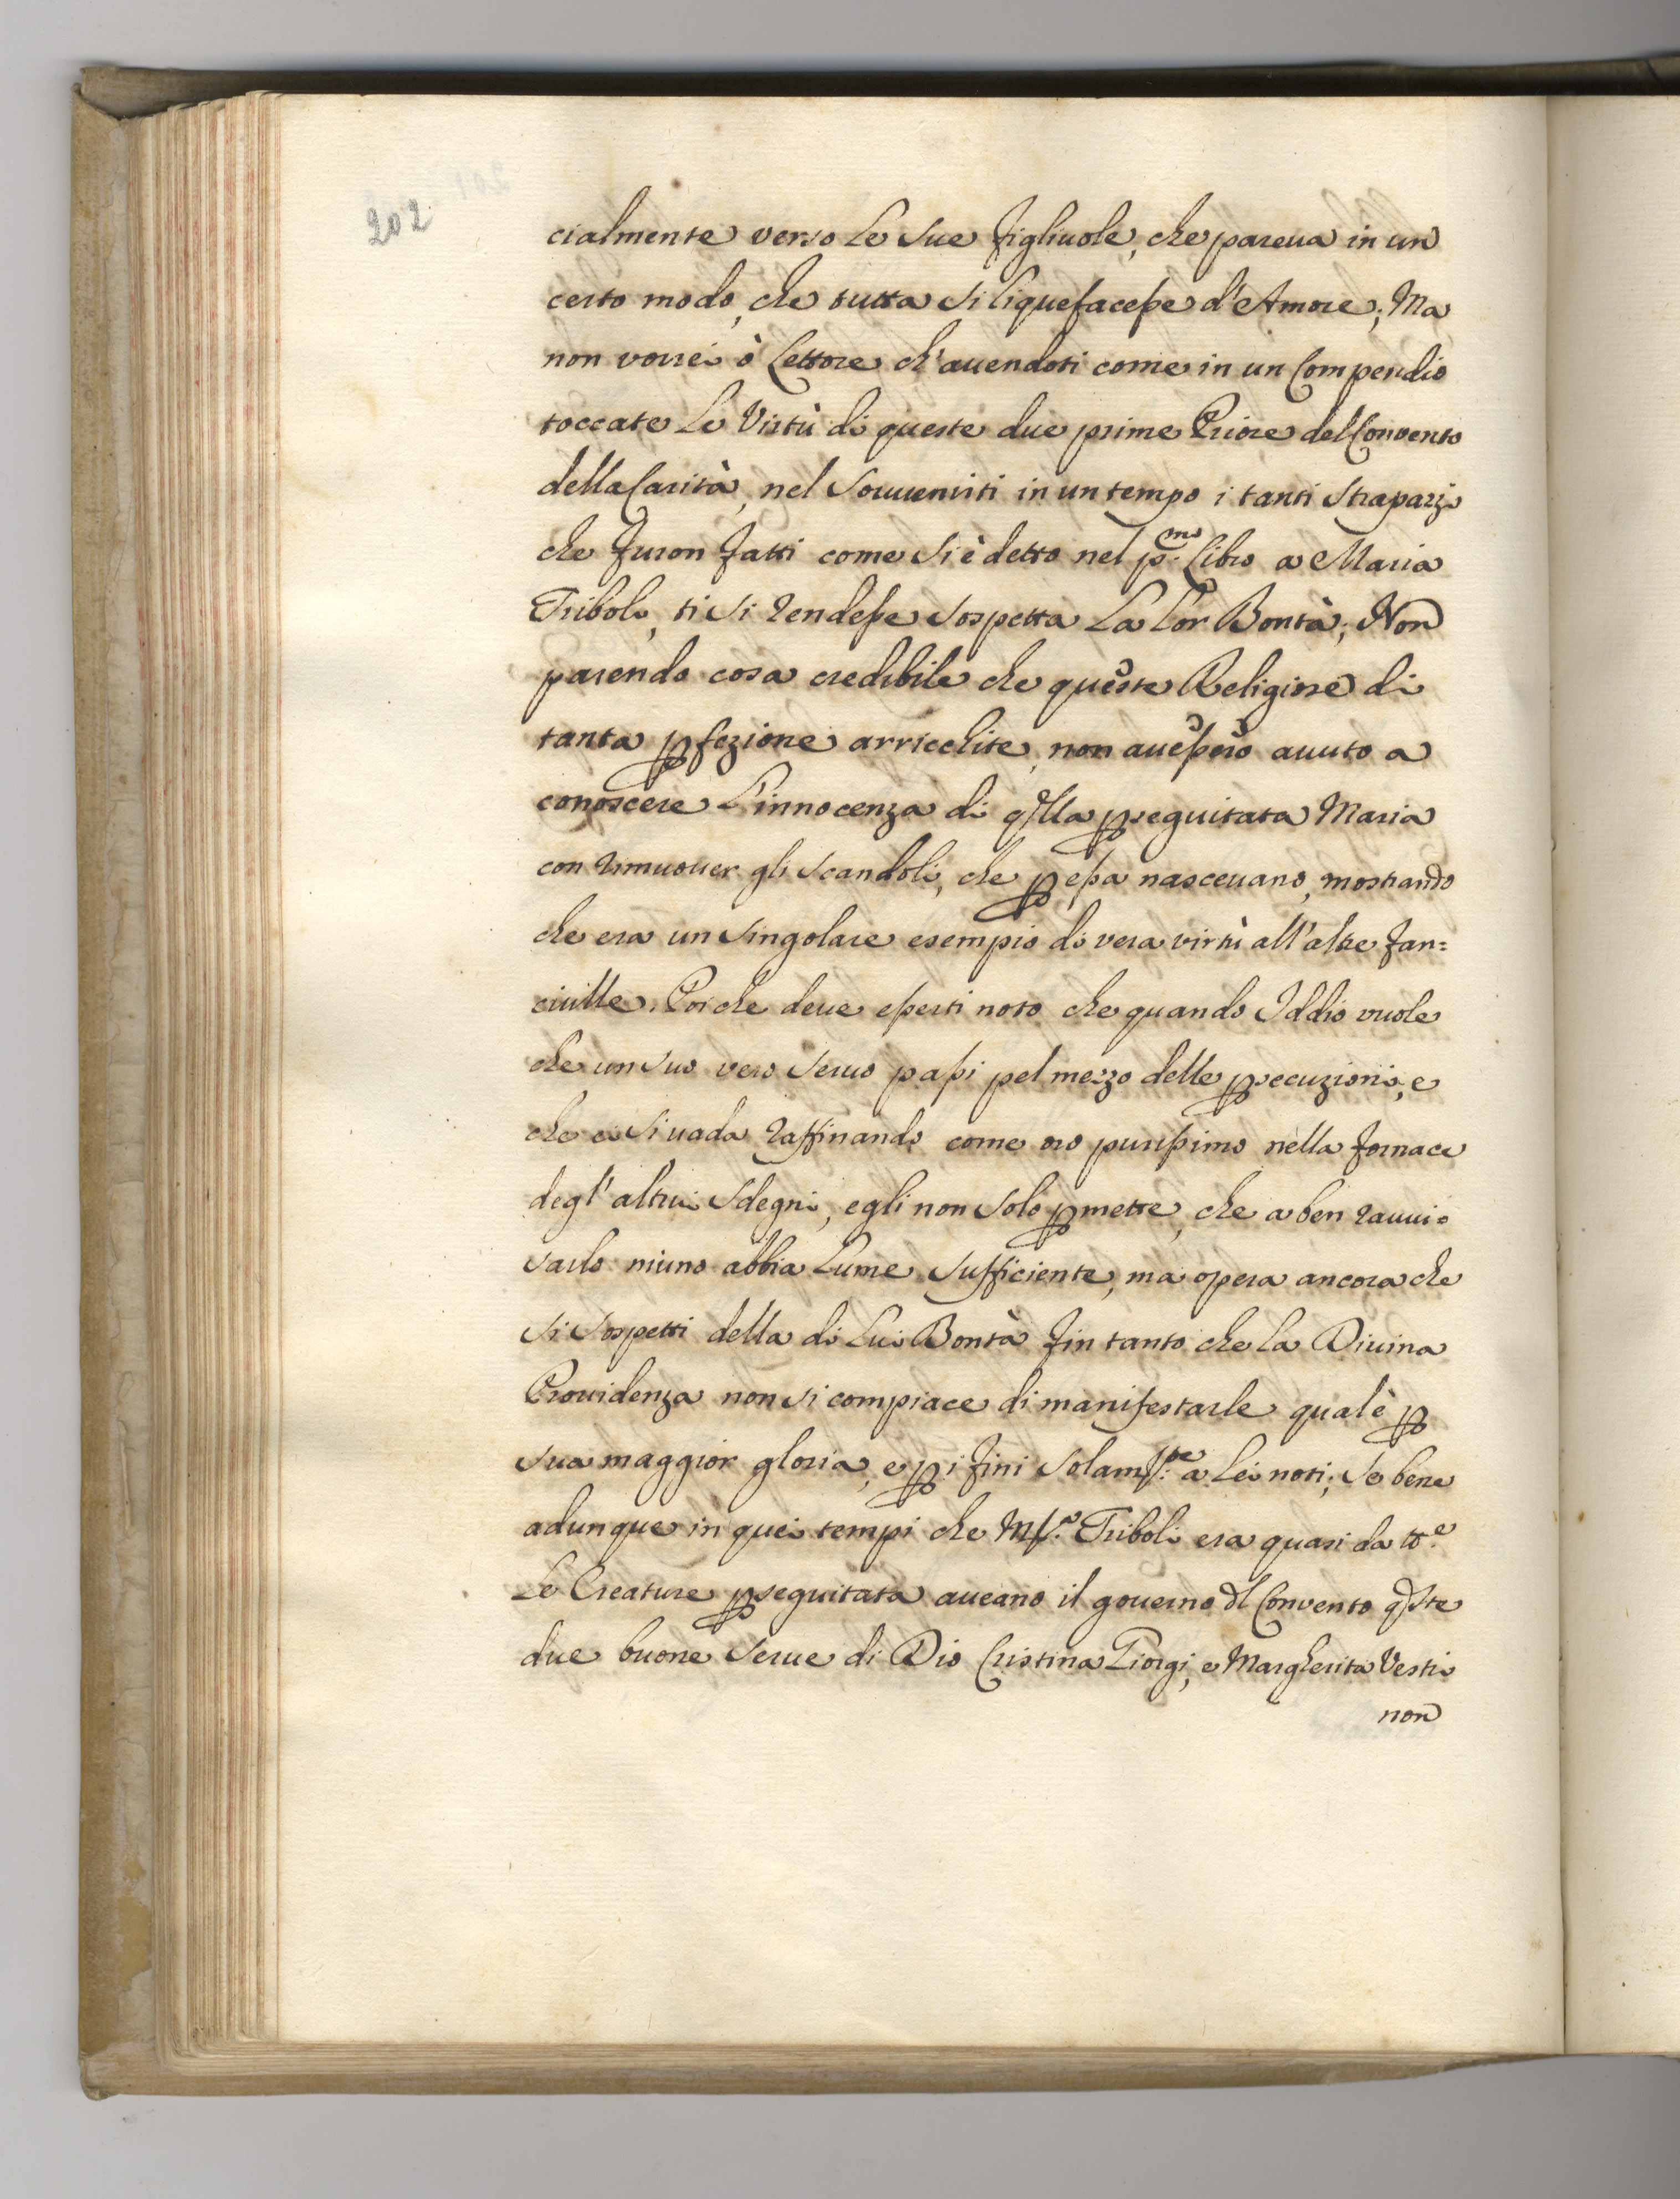 202
cialmente verso le sue figliuole, che pareua in un
certo modo, che tutta si liquefacesse d'Amore; Ma
non vorrei ò Lettore ch'auendoti come in un Compendio
toccate le Virtù di queste due prime Priore del Convento
della Carità, nel souuenirti in un tempo i tanti strapazzi
che furon fatti come si è detto nel p.mo Libro a Maria
Triboli, ti si rendesse sospetta la lor Bontà; Non
parendo cosa credibile che queste Religiose di
tanta pfezione arricchite, non auessero auuto a
conoscere l'innocenza di qlla pseguitata Maria
con rimuouer gli scandoli, che p essa nasceuano, mostrando
che era un singolare esempio di vera virtù all'altre fan=
ciulle. Poi che deue esserti noto che quando Iddio vuole
che un suo vero seruo passi pel mezzo delle psecuzioni, e
che ei si uada raffinando come oro purissimo nella fornace
degl'altrui sdegni, egli non solo pmette, che a ben rauui=
sarlo niuno abbia lume sufficiente, ma opera ancora che
si sospetti della di lui Bontà fin tanto che la Diuina
Prouidenza non si compiace di manifestarle qual'è p
sua maggior gloria, e p i fini solam.te a lei noti; Se bene
adunque in quei tempi che M.a Triboli era quasi da tt.e
le Creature pseguitata aueano il gouerno dl Convento qste
due buone serue di Dio Cristina Giorgi, e Margherita Vestri
non